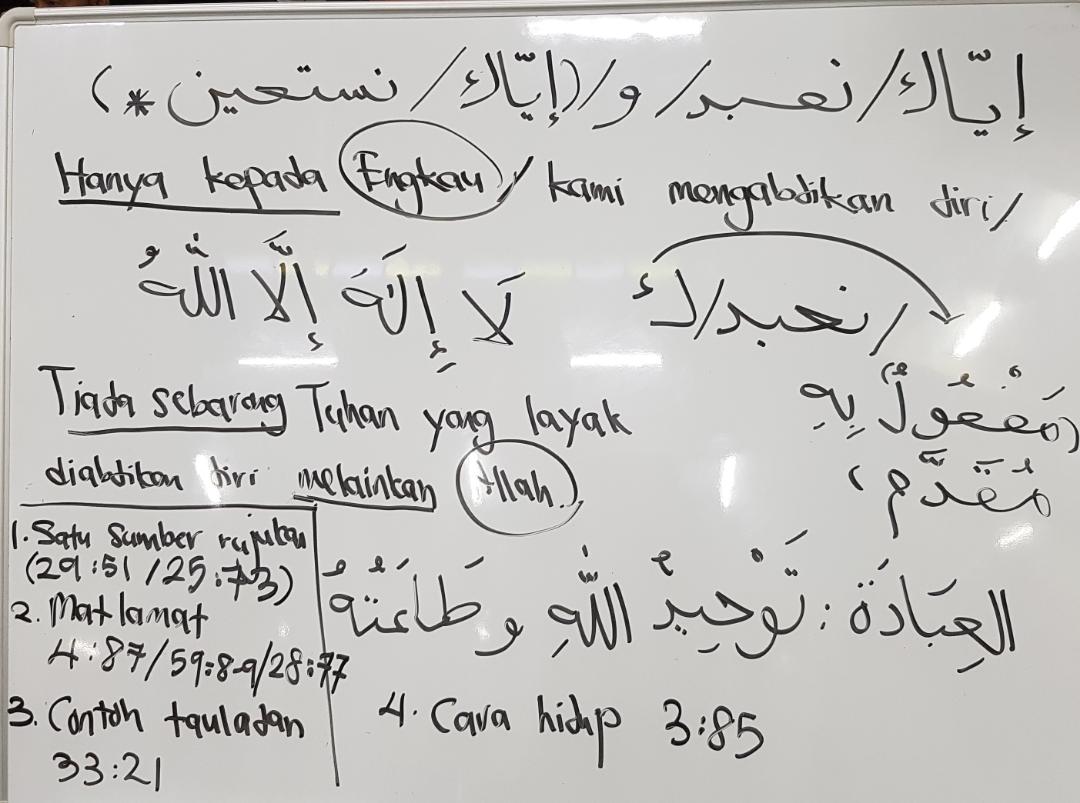 إيّاك/نعبد/و/(إيّاك/نستعين *)
Hanya kepada Engkau / kami mengabdikan diri/
/نعبد/ك
لَا إِلَهَ إِلَّا اللهُ
(مَفْعُولٌ بِهِ
مُقَدَّم)
Tiada sebarang Tuhan yang layak
diabdikan diri melainkan Allah.
العِبَادَة : تَوْحِيدُ اللهِ وطَاعَتُهُ
1. Satu sumber rujukan
(29:51 / 25:73)
2. Matlamat
4:87/59:8-9/28:77
3. Contoh tauladan
33:21
4. Cara hidup 3:85